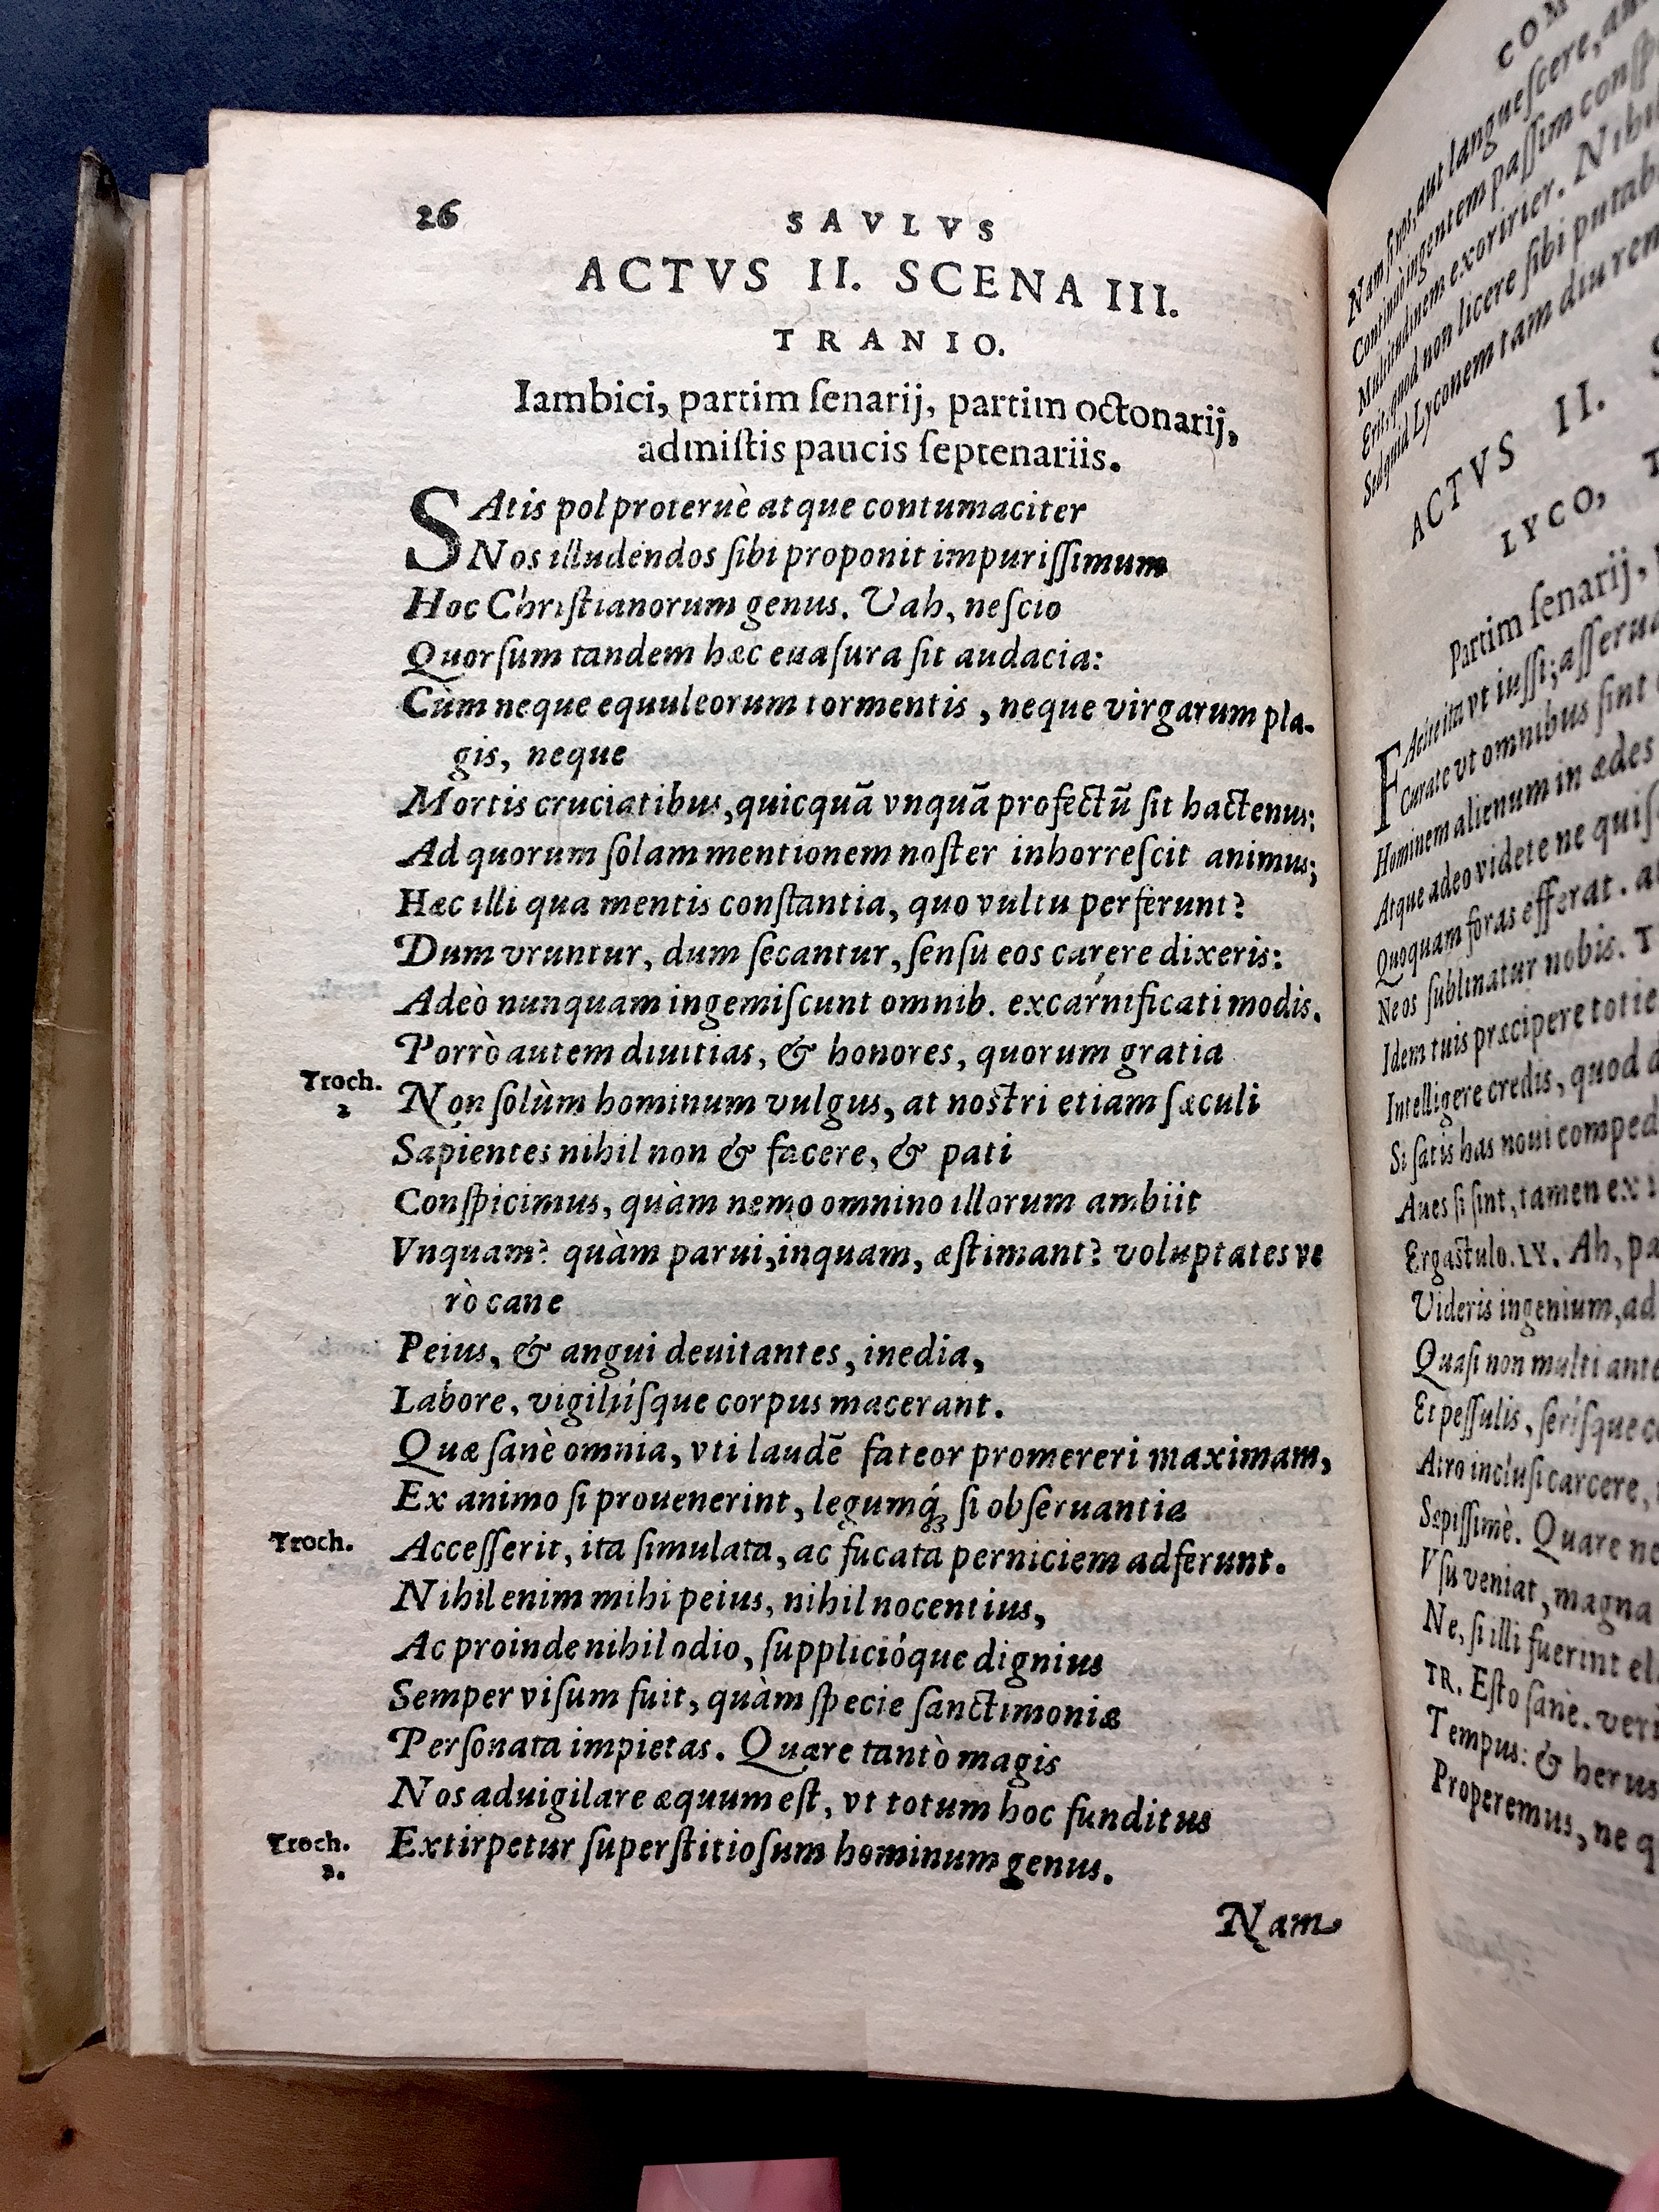 26
SAVLVS
ACTVS II. SCENA III.
TRANIO.
Iambici, partim ſenarij, partim octonarij,
admiſtis paucis ſeptenariis.
SAtis pol proteruè atque contumaciter
Nos illudendos ſibi proponit impuriſſimum
Hoc Chriſtianorum genus. Vah, neſcio
Quorſum tandem hæc euaſura ſit audacia:
Cùm neque equuleorum tormentis, neque virgarum pla-
gis, neque
Mortis cruciatibus, quicquā vnquā profectū ſit hactenus:
Ad quorum ſolam mentionem noſter inhorreſcit animus;
Hæc illi qua mentis conſtantia, quo vultu perferunt?
Dum vruntur, dum ſecantur, ſenſu eos carere dixeris:
Adeò nunquam ingemiſcunt omnib. excarnificati modis.
Porrò autem diuitias, & honores, quorum gratia
Troch.
2
Non ſolùm hominum vulgus, at noſtri etiam ſæculi
Sapientes nihil non & facere, & pati
Conſpicimus, quàm nemo omnino illorum ambiit
Vnquam? quàm parui, inquam, æſtimant? voluptates ve
rò cane
Peius, & angui deuitantes, inedia,
Labore, vigiliíſque corpus macerant.
Quæ ſanè omnia, vti laudē fateor promereri maximam,
Ex animo ſi prouenerint, legumq́ꝫ ſi obſeruantia
Troch.
Acceſſerit, ita ſimulata, ac fucata perniciem adferunt.
Nihil enim mihi peius, nihil nocentius,
Ac proinde nihil odio, ſupplicióque dignius
Semper viſum fuit, quàm ſpecie ſanctimoniæ
Perſonata impietas. Quare tantò magis
Nos aduigilare æquum eſt, vt totum hoc funditus
Troch.
2.
Extirpetur ſuperſtitioſum hominum genus.
Nam
COM
Nam ſi nos, aut langueſcere, au
Continuò ingentem paſſim conſp
Multitudinem exoririer. Nihi
Erit, quod non licere ſibi putab
Sed quid Lyconem tam diu rem
ACTVS II. S
LYCO, T
Partim ſenarij,
FAcite ita vt iuſſi; aſſerua
Curate vt omnibus ſint
Hominem alienum in ædes
Atque adeo videte ne quiſ
Quoquam foras efferat. a
Ne os ſublinatur nobis. T
Idem tuis præcipere totie
Intelligere credis, quod a
Si ſatis has noui comped
Aues ſi ſint, tamen ex i
Ergaſtulo. LY. Ah, pa
Videris ingenium, ad
Quaſi non multi ante
Et peſſulis, ſeríſque c
Atro incluſi carcere,
Sæpiſſimè. Quare ne
Vſu veniat, magna
Ne, ſi illi fuerint el
TR. Eſto ſanè. veri
Tempus: & herus
Properemus, ne q